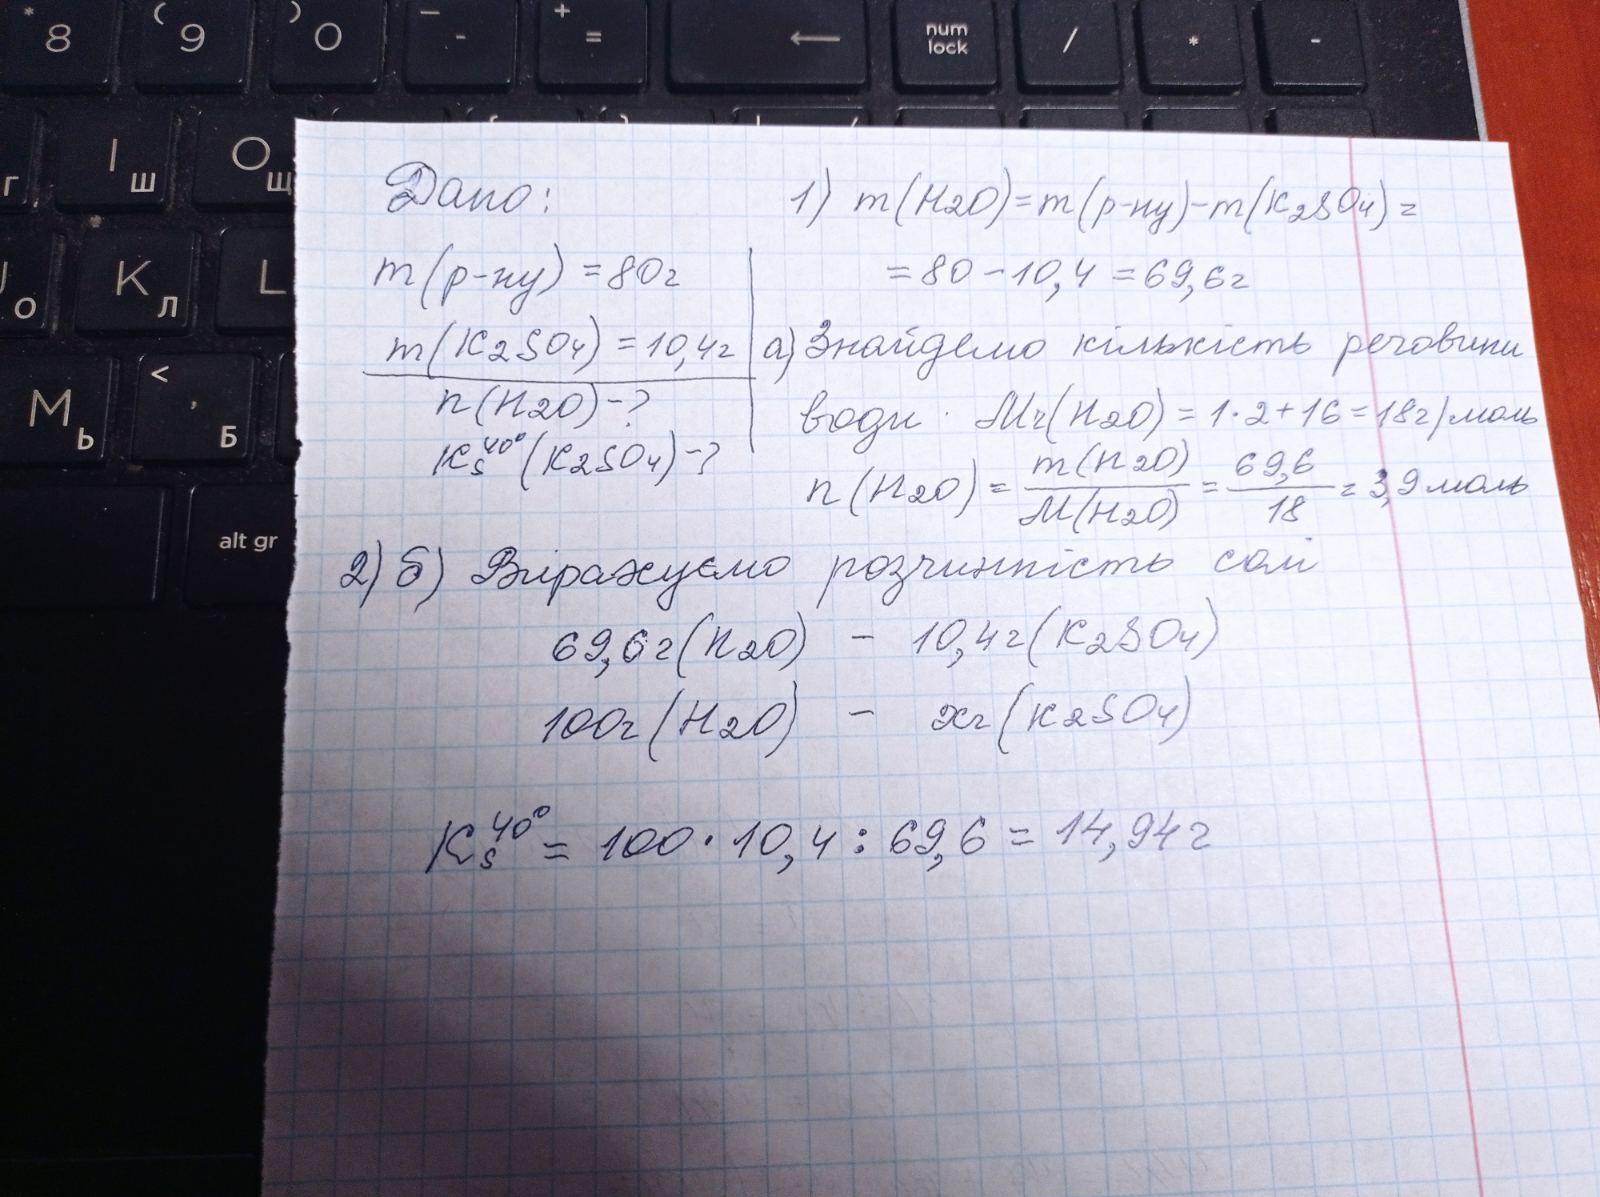 * 8
( 9
) 0
— -
+ =
←
num lock
/
*
-
г
І Ш
O Щ
О
K Л
L
М Ь
< , Б
alt gr
Дано:
m(р-ну) = 80г
m(K2SO4) = 10,4г
n(H2O)-?
Ks^40°(K2SO4)-?
1) m(H2O)=m(р-ну)-m(K2SO4)=
=80-10,4=69,6г
а) Знайдемо кількість речовини
води. Mr(H2O)=1·2+16=18г/моль
n(H2O) = m(H2O)/M(H2O) = 69,6/18 = 3,9 моль
2) б) Виражуємо розчинність солі
69,6г(H2O) – 10,4г(K2SO4)
100г(H2O) – xг(K2SO4)
Ks^40° = 100·10,4:69,6 = 14,94г